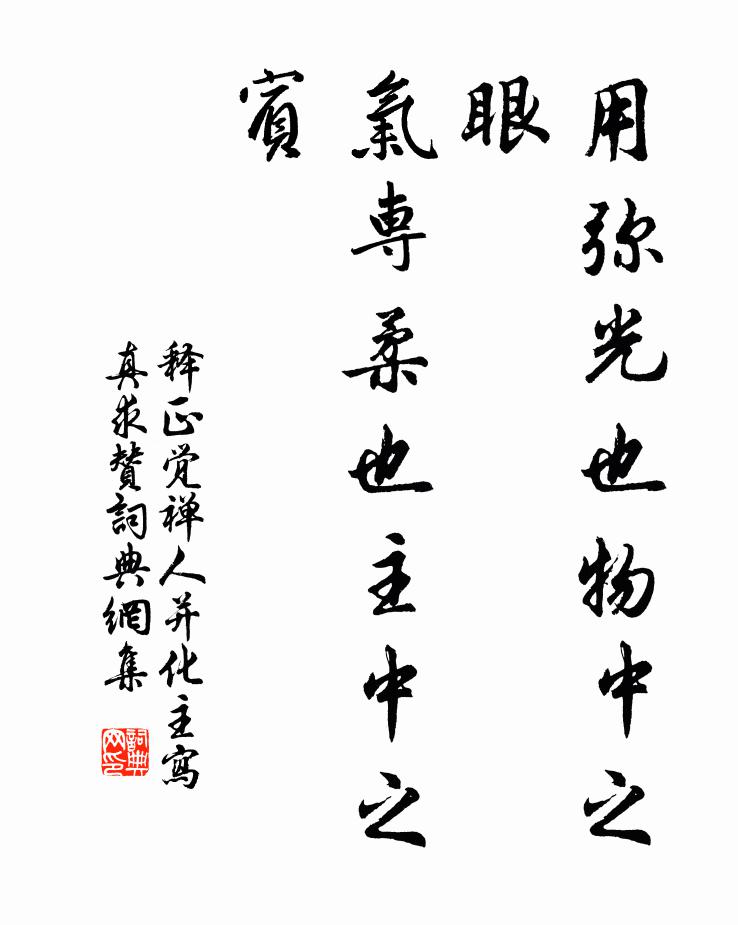 用弥光也物中之
眼
氣専柔也主中之
賓
释正覚禅人并化主寫
真求賛詞典網集
詞典
网印